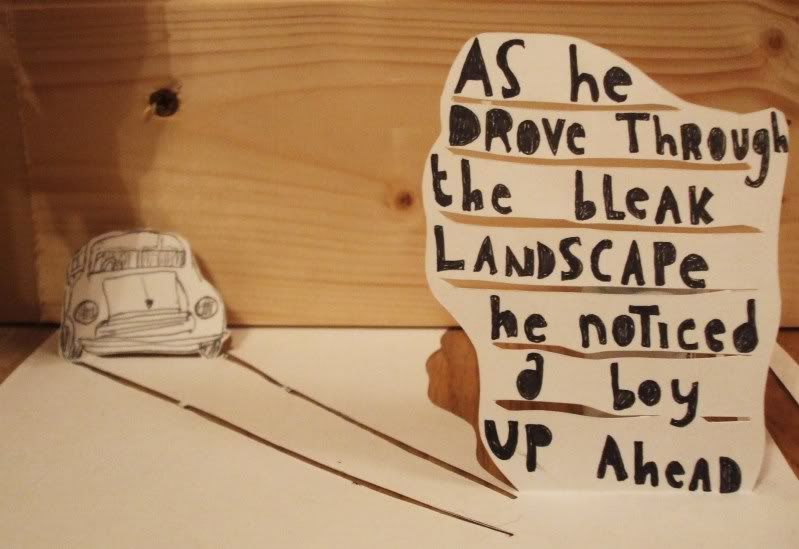 AS he
DROVE THROUGh
the bLEAK
LANDSCAPe
he noTiced
a boy
UP AheAD